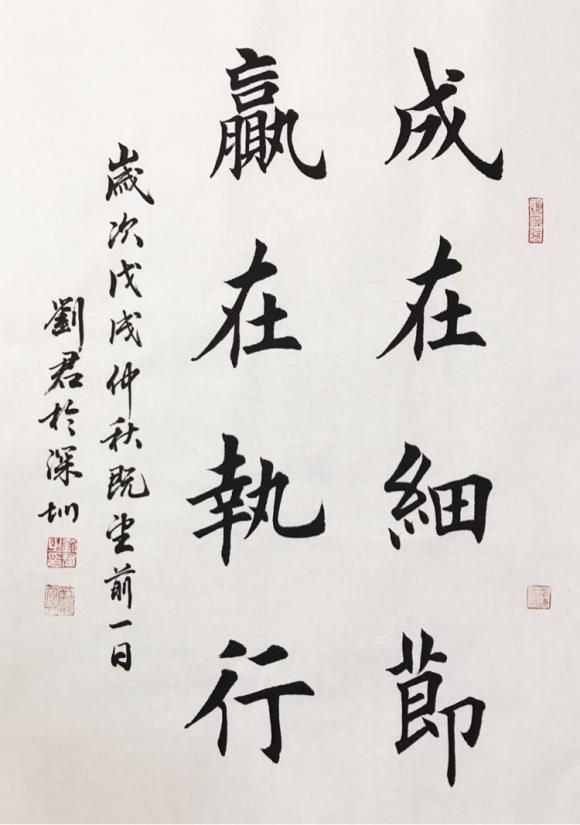 成在細節
贏在執行
歲次戊戌仲秋既望前一日
劉君於深圳